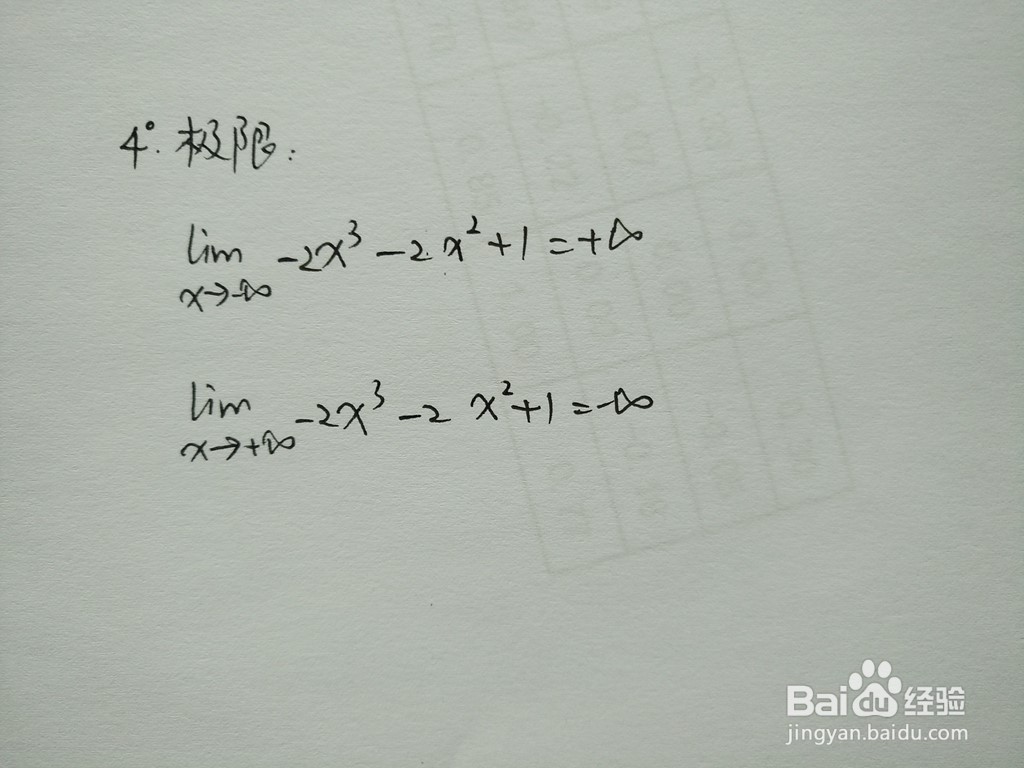 4°. 极限:
lim -2x³ -2x² +1 = +∞
x→-∞
lim -2x³ -2x² +1 = -∞
x→+∞
Bai du 经验
jingyan.baidu.com